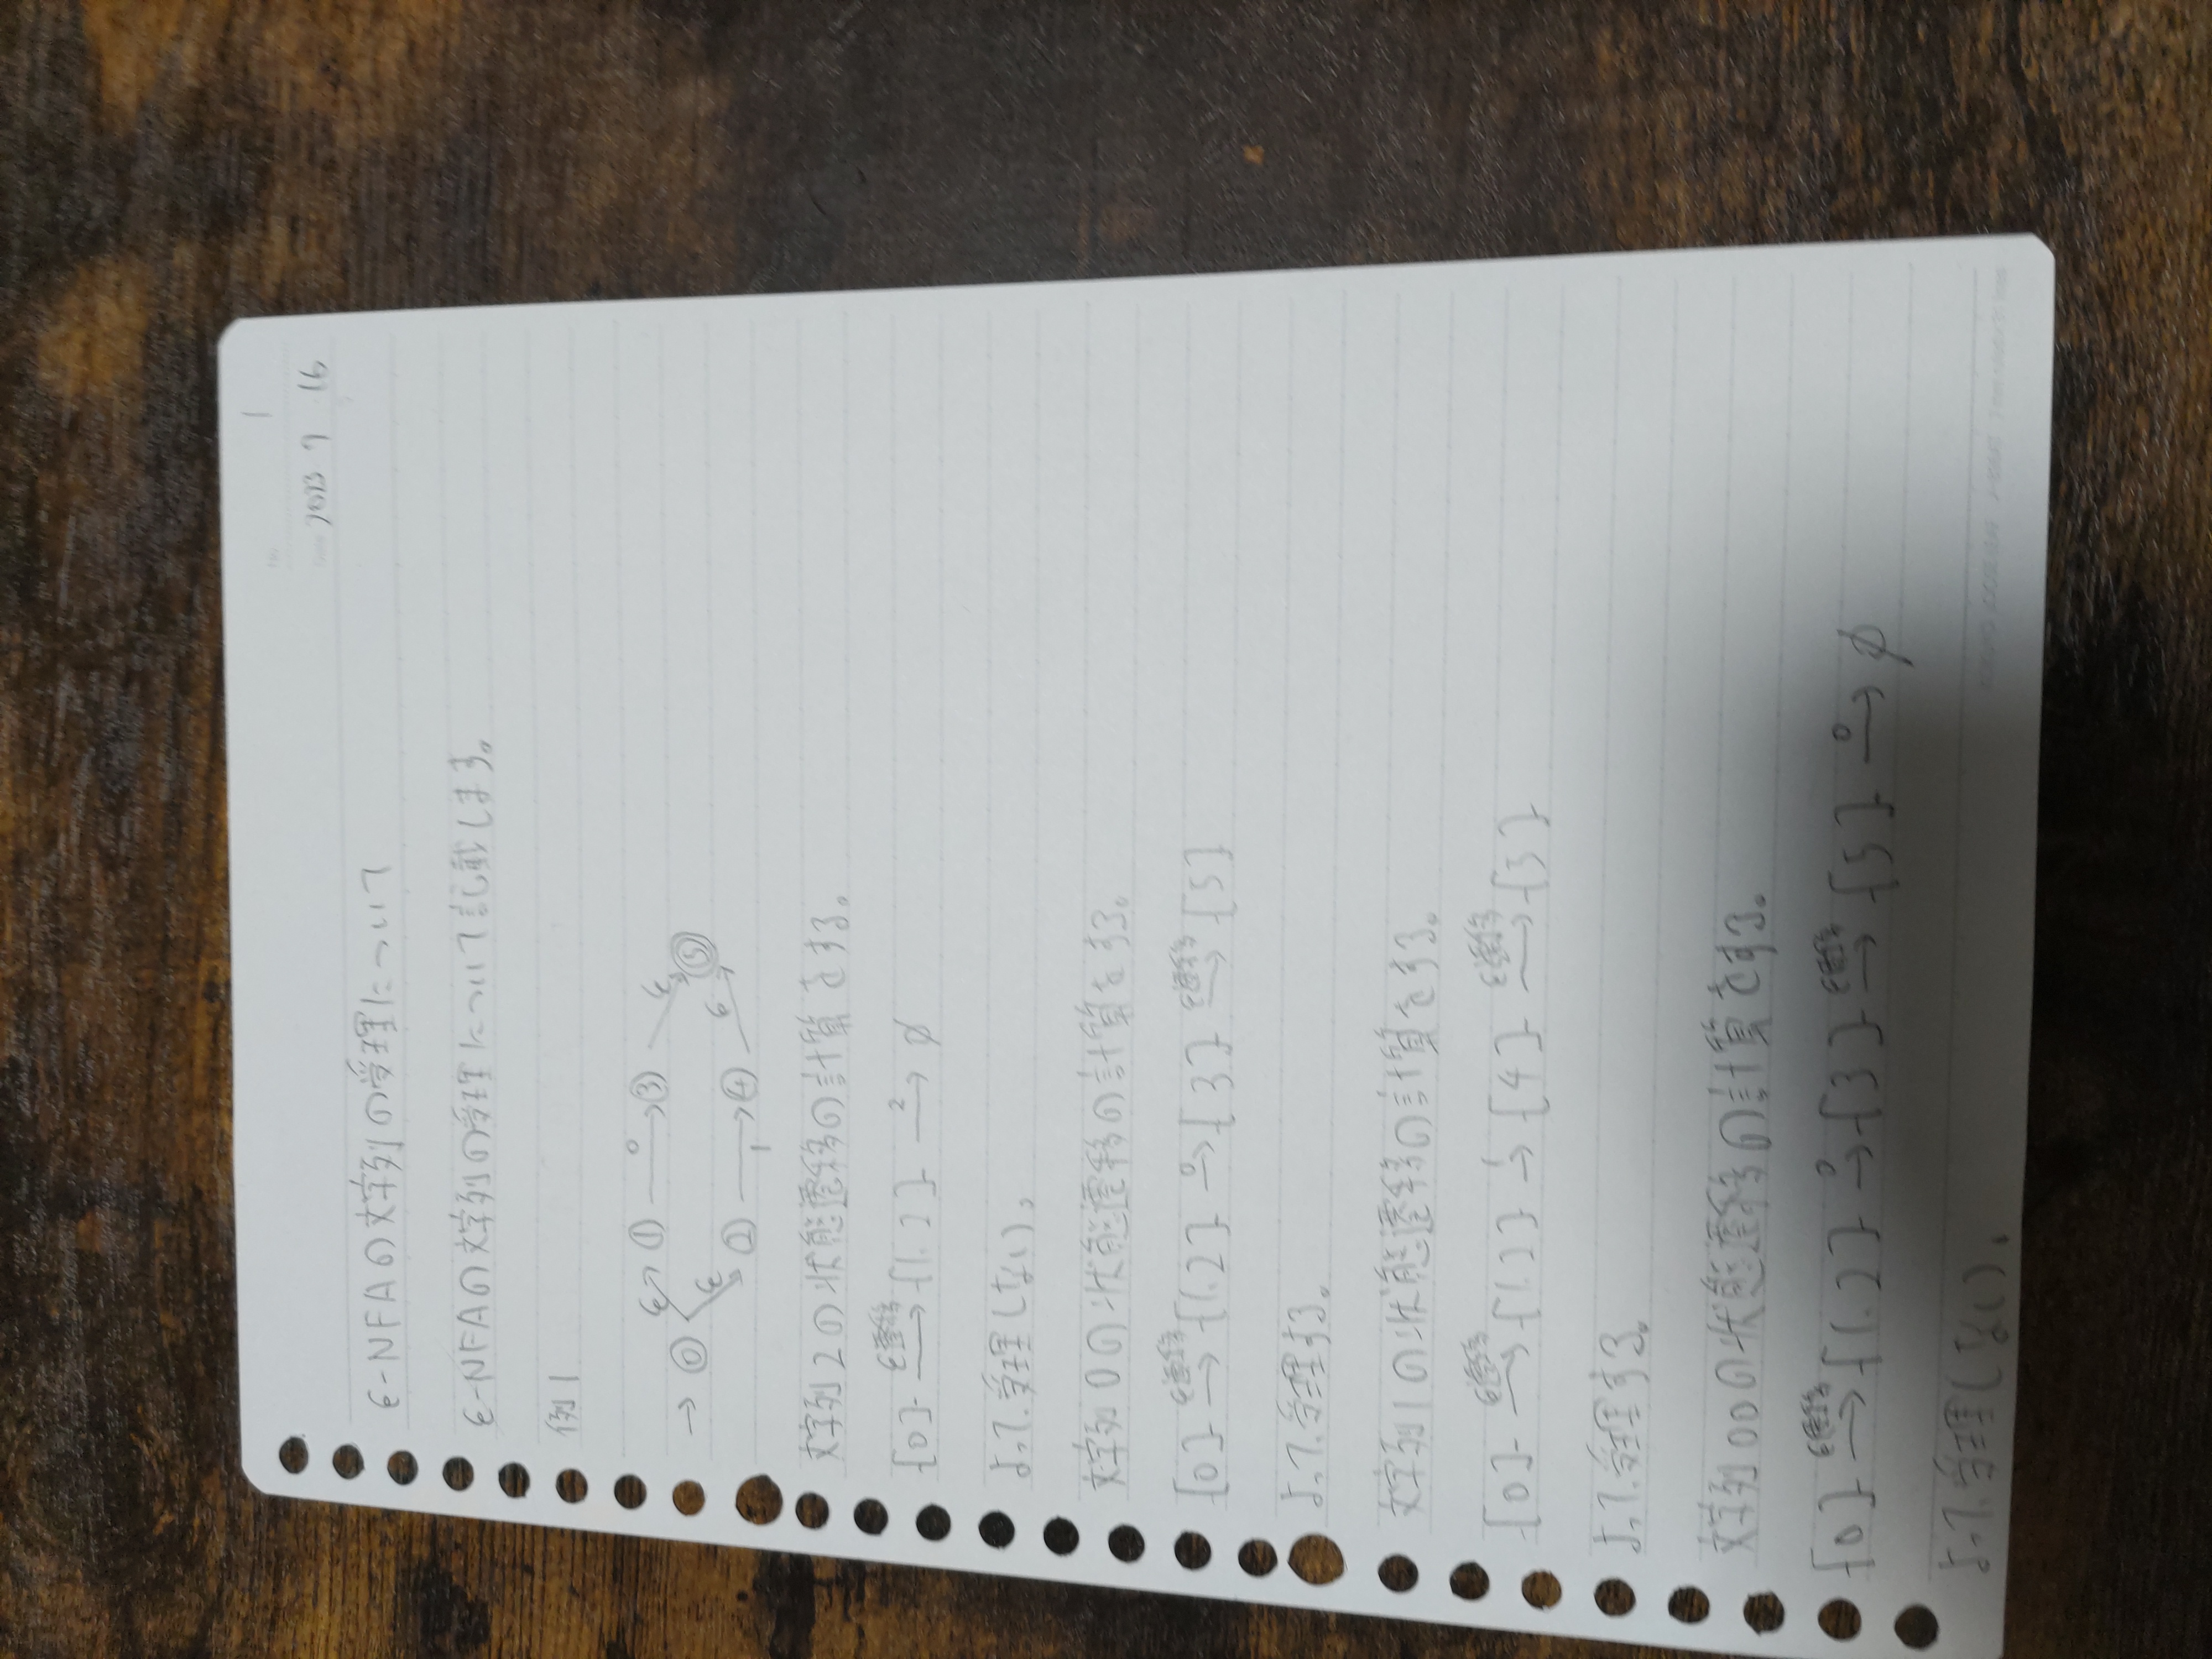 1
2023 9 16
ε-NFAの文字列の受理について
ε-NFAの文字列の受理について記載します。
例1
→ 0 ε 1 0 3 ε 5
ε 2 1 4 ε
文字列2の状態遷移の計算をする。
{0} ε遷移→ {1.2} 2→ ∅
よって.受理しない。
文字列0の状態遷移の計算をする。
{0} ε遷移→ {1.2} 0→ {3} ε遷移→ {5}
よって.受理する。
文字列1の状態遷移の計算をする。
{0} ε遷移→ {1.2} 1→ {4} ε遷移→ {5}
よって.受理する。
文字列00の状態遷移の計算をする。
{0} ε遷移→ {1.2} 0→ {3} ε遷移→ {5} 0→ ∅
よって.受理しない。